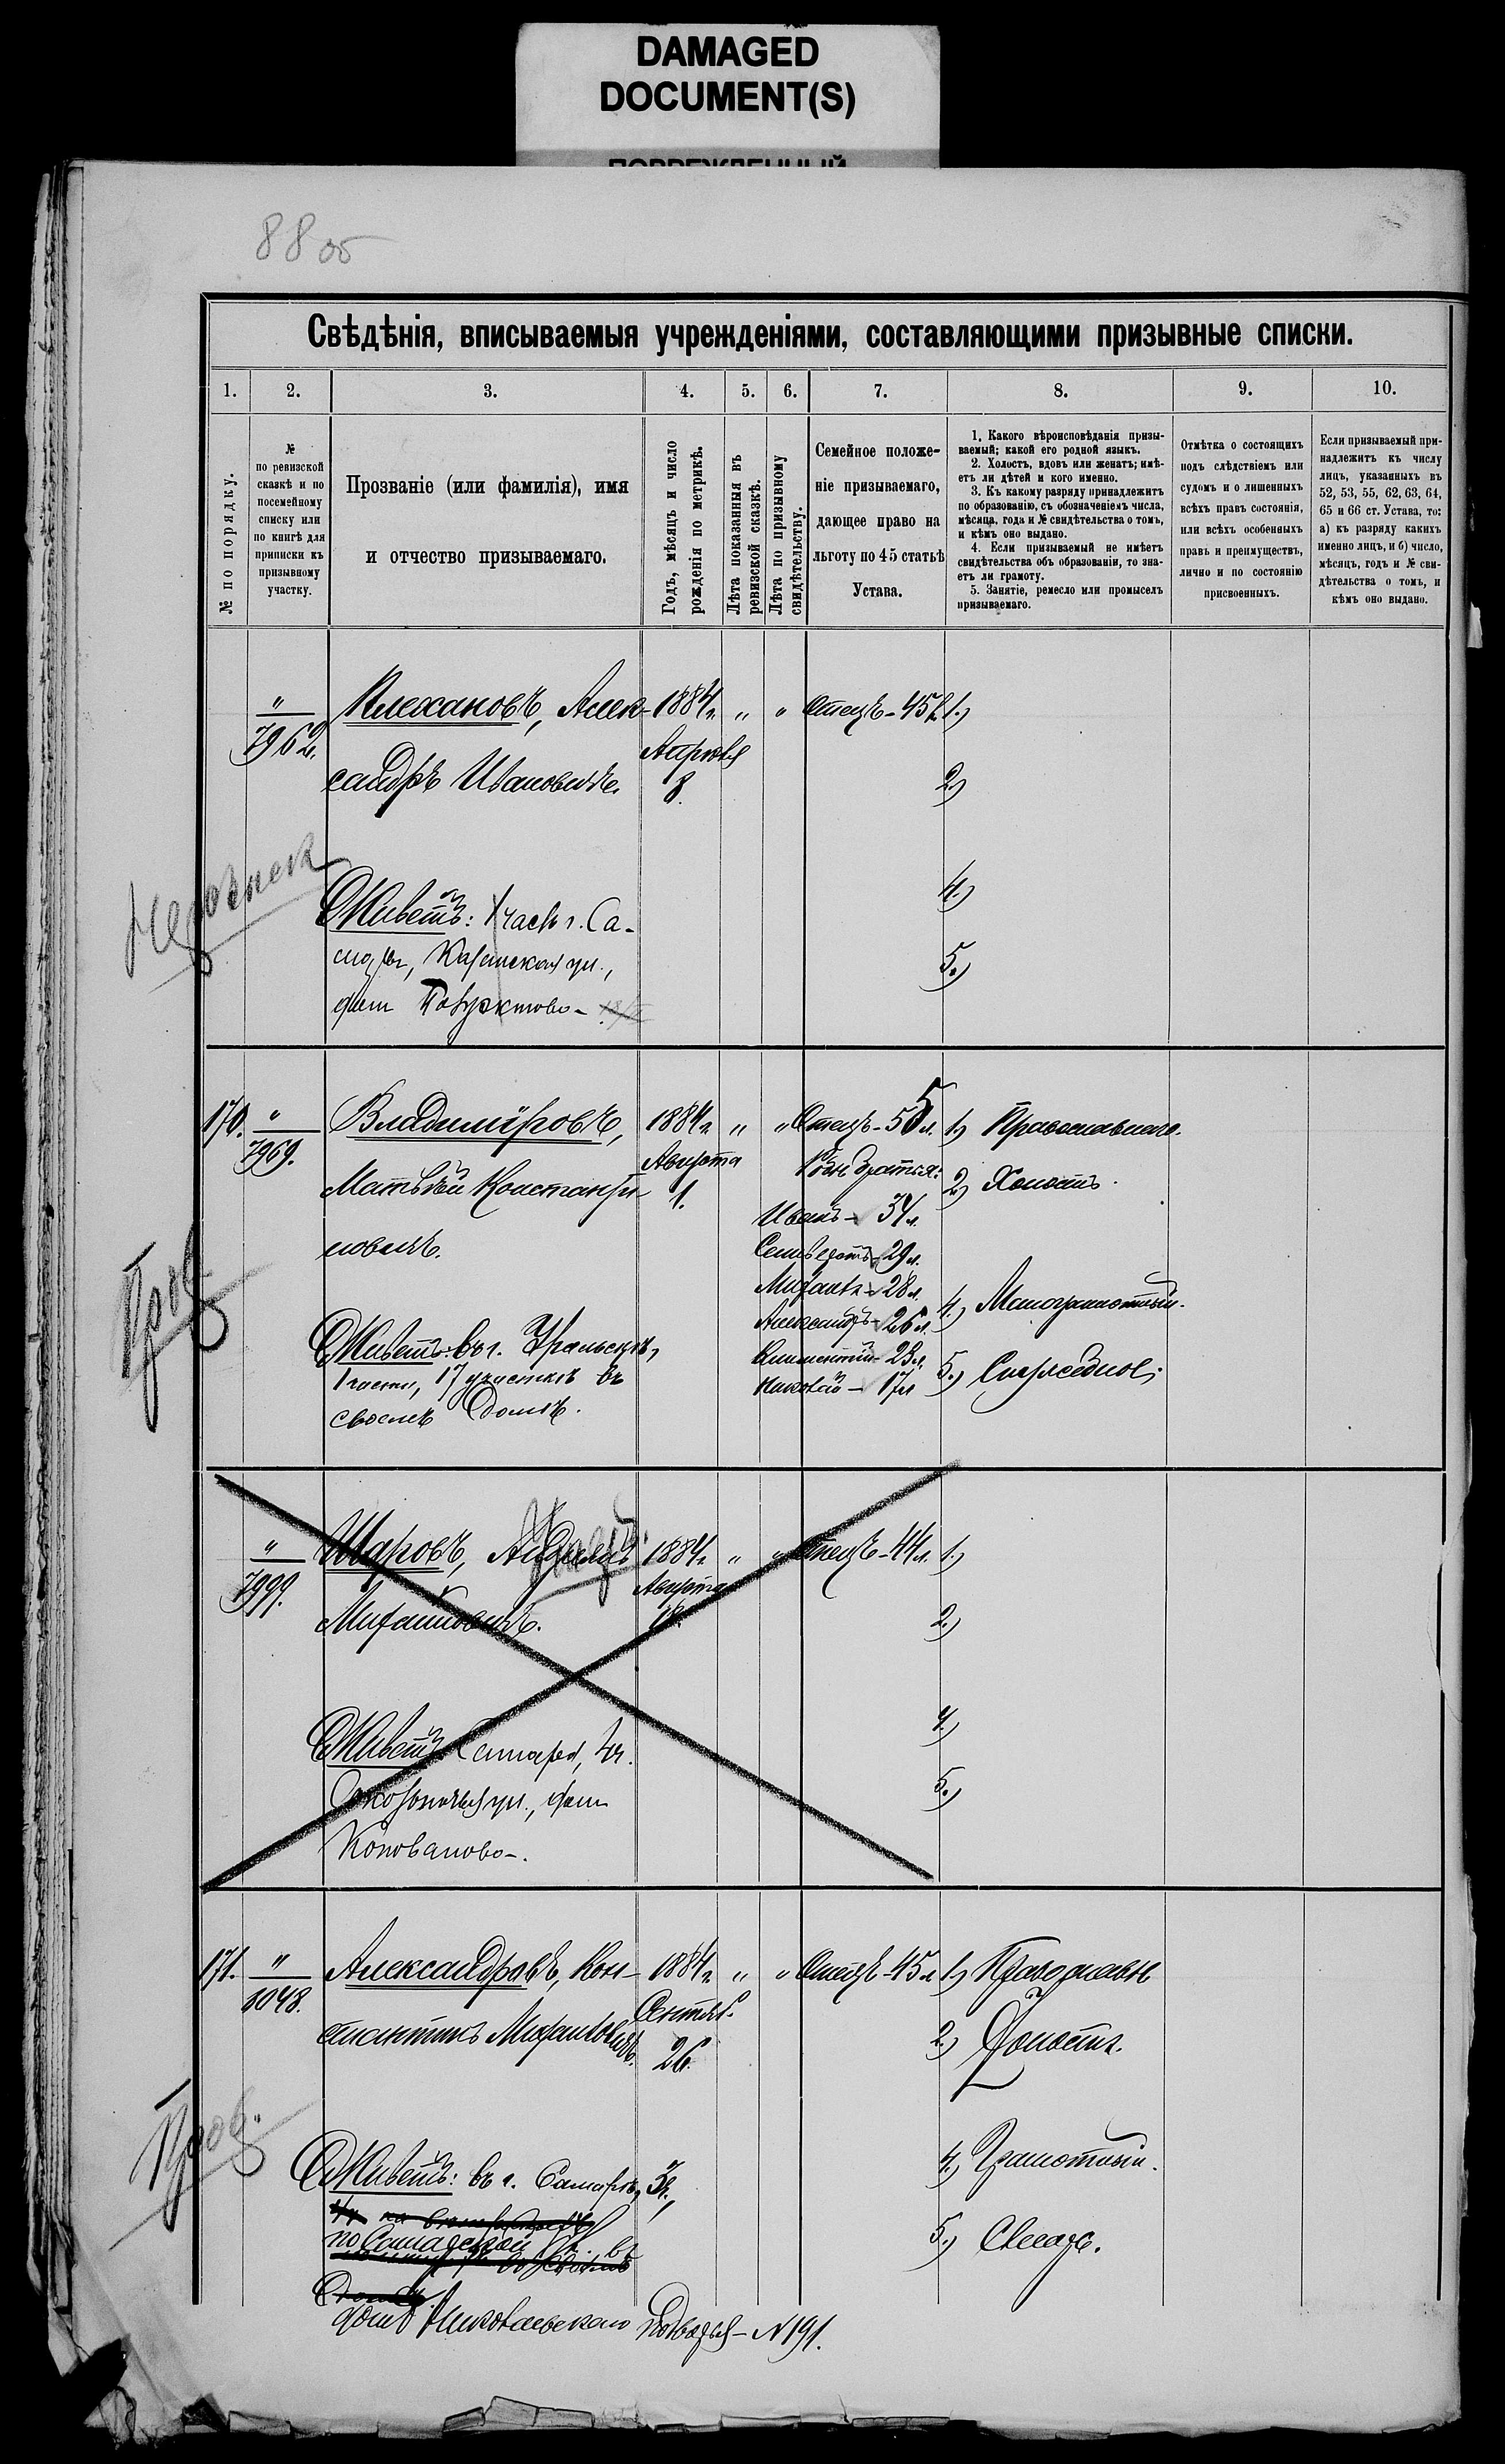 DAMAGED
DOCUMENT(S)
ПОВРЕЖДЕННЫЙ
88 об
Свѣдѣнія, вписываемыя учрежденіями, составляющими призывные списки.
1. 2. 3. 4. 5. 6. 7. 8. 9. 10.
№ по порядку.
№
по ревизской
сказкѣ и по
посемейному
списку или
по книгѣ для
приписки къ
призывному
участку.
Прозваніе (или фамилія), имя
и отчество призываемаго.
Годъ, мѣсяцъ и число
рожденія по метрикѣ.
Лѣта показанныя въ
ревизской сказкѣ.
Лѣта по призывному
свидѣтельству.
Семейное положе-
ніе призываемаго,
дающее право на
льготу по 45 статьѣ
Устава.
1. Какого вѣроисповѣданія призы-
ваемый; какой его родной языкъ.
2. Холостъ, вдовъ или женатъ; имѣ-
етъ ли дѣтей и кого именно.
3. Къ какому разряду принадлежитъ
по образованію, съ обозначеніемъ числа,
мѣсяца, года и № свидѣтельства о томъ,
и кѣмъ оно выдано.
4. Если призываемый не имѣетъ
свидѣтельства объ образованіи, то зна-
етъ ли грамоту.
5. Занятіе, ремесло или промыселъ
призываемаго.
Отмѣтка о состоящихъ
подъ слѣдствіемъ или
судомъ и о лишенныхъ
всѣхъ правъ состоянія,
или всѣхъ особенныхъ
правъ и преимуществъ,
лично и по состоянію
присвоенныхъ.
Если призываемый при-
надлежитъ къ числу
лицъ, указанныхъ въ
52, 53, 55, 62, 63, 64,
65 и 66 ст. Устава, то:
а) къ разряду какихъ
именно лицъ, и б) число,
мѣсяцъ, годъ и № сви-
дѣтельства о томъ, и
кѣмъ оно выдано.
" Плехановъ, Алек- 1884г. " " Отецъ - 45 л. 1.)
7962. Апрѣля
сандръ Ивановичъ. 8. 2.)
4.)
Живетъ: 1 част. г. Са-
ул., 5.)
дом
170. " Владиміровъ, 1884г. " " Отецъ - 55 л. 1.) Православнаго.
7969. Августа братья:
Матвѣй Константи- 1. 2.) Холостъ.
Иванъ - 34 л.
новичъ. 29 л.
Михаилъ - 28 л.
Александръ - 26 л. 4.) Малограмотный.
Живетъ: въ г. Уральскѣ, Климентій - 23 л.
1 части, 17 участкѣ въ Николай - 17 л. 5.)
своемъ домѣ.
Пров.
" Шаровъ, 1884г. " " Отецъ - 44 л. 1.)
7999. Августа
Михайловичъ. 18. 2.)
4.)
Живетъ: Самара, 4ч.
ул., дом 5.)
Коновалово-.
171. " Александровъ, Кон- 1884г. " " Отецъ - 45 л. 1.) Православн
8048. Сентяб.
стантинъ Михайловичъ. 26. 2.) Холостъ.
Пров.
Живетъ: въ г. Самарѣ, 3ч., 4.) Грамотный.
по въ 5.) Слесарь.
домъ Николаевскаго подворья - N 191.